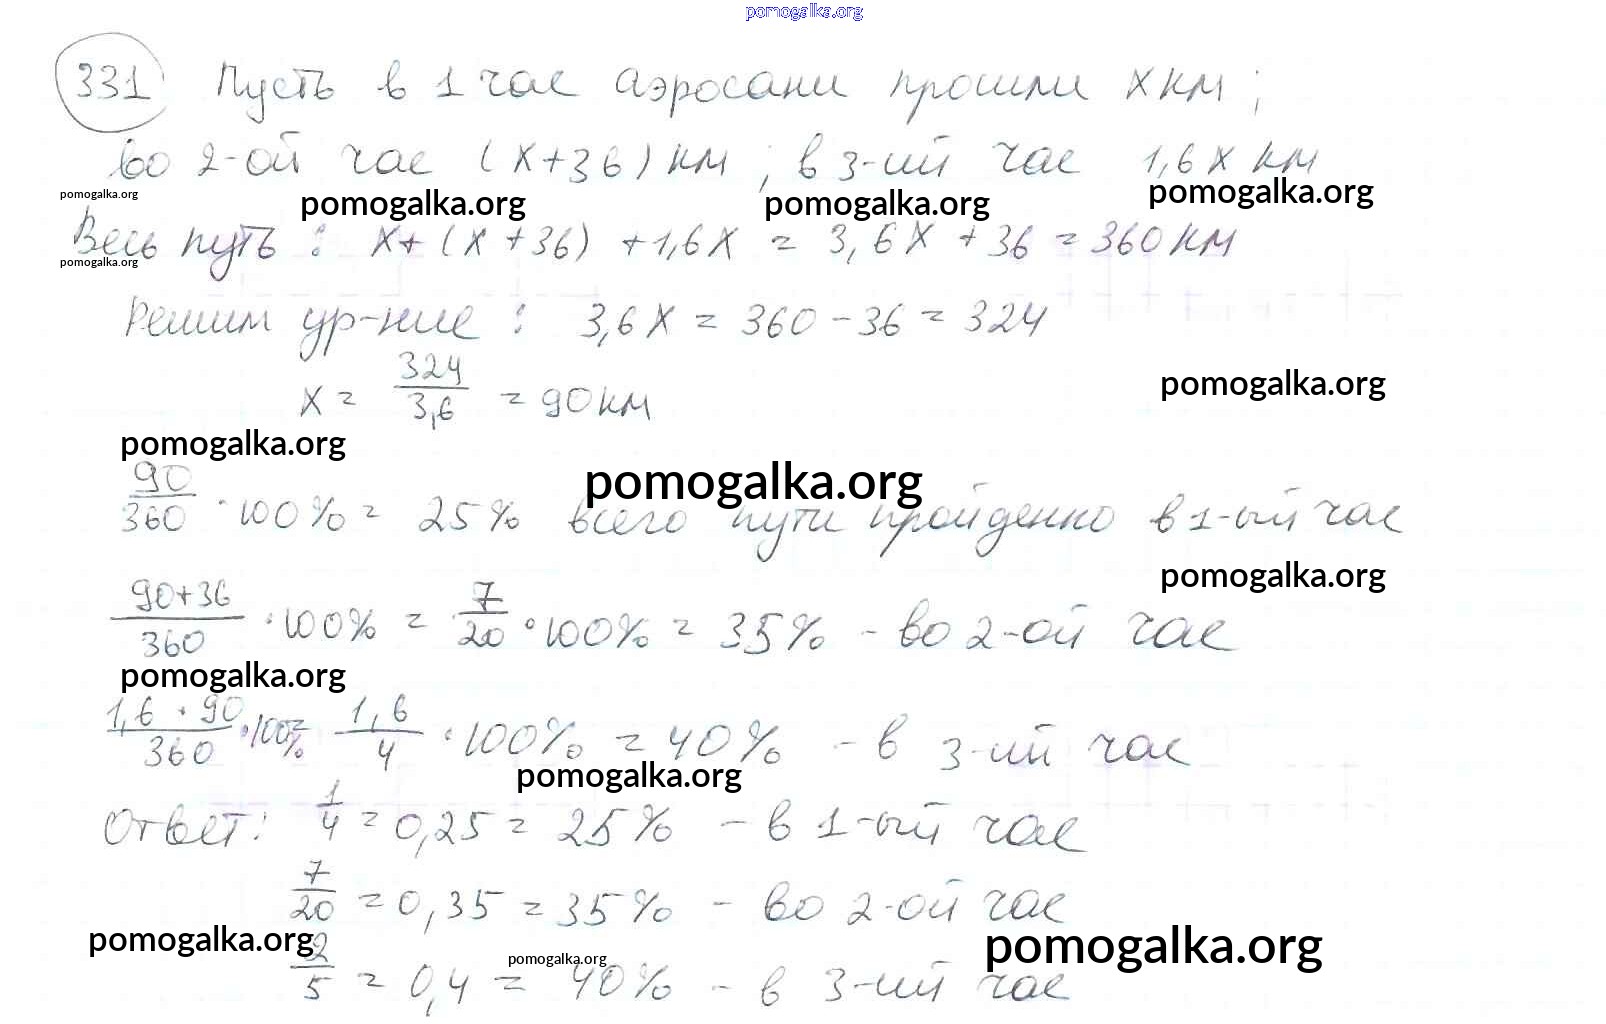 pomogalka.org
331 Пусть в 1 час аэросани прошли x км;
во 2-ой час (x+36) км; в 3-ий час 1,6x км
pomogalka.org pomogalka.org pomogalka.org pomogalka.org
Весь путь: x+(x+36)+1,6x = 3,6x+36 = 360 км
pomogalka.org
Решим ур-ние: 3,6x = 360-36 = 324
x = 324/3,6 = 90 км
pomogalka.org
pomogalka.org
pomogalka.org
90/360 · 100% = 25% всего пути пройденно в 1-ый час
pomogalka.org
90+36/360 · 100% = 7/20 · 100% = 35% - во 2-ой час
pomogalka.org
1,6 · 90/360 · 100% = 1,6/4 · 100% = 40% - в 3-ий час
pomogalka.org
Ответ: 1/4 = 0,25 = 25% - в 1-ый час
7/20 = 0,35 = 35% - во 2-ой час
pomogalka.org pomogalka.org pomogalka.org
2/5 = 0,4 = 40% - в 3-ий час